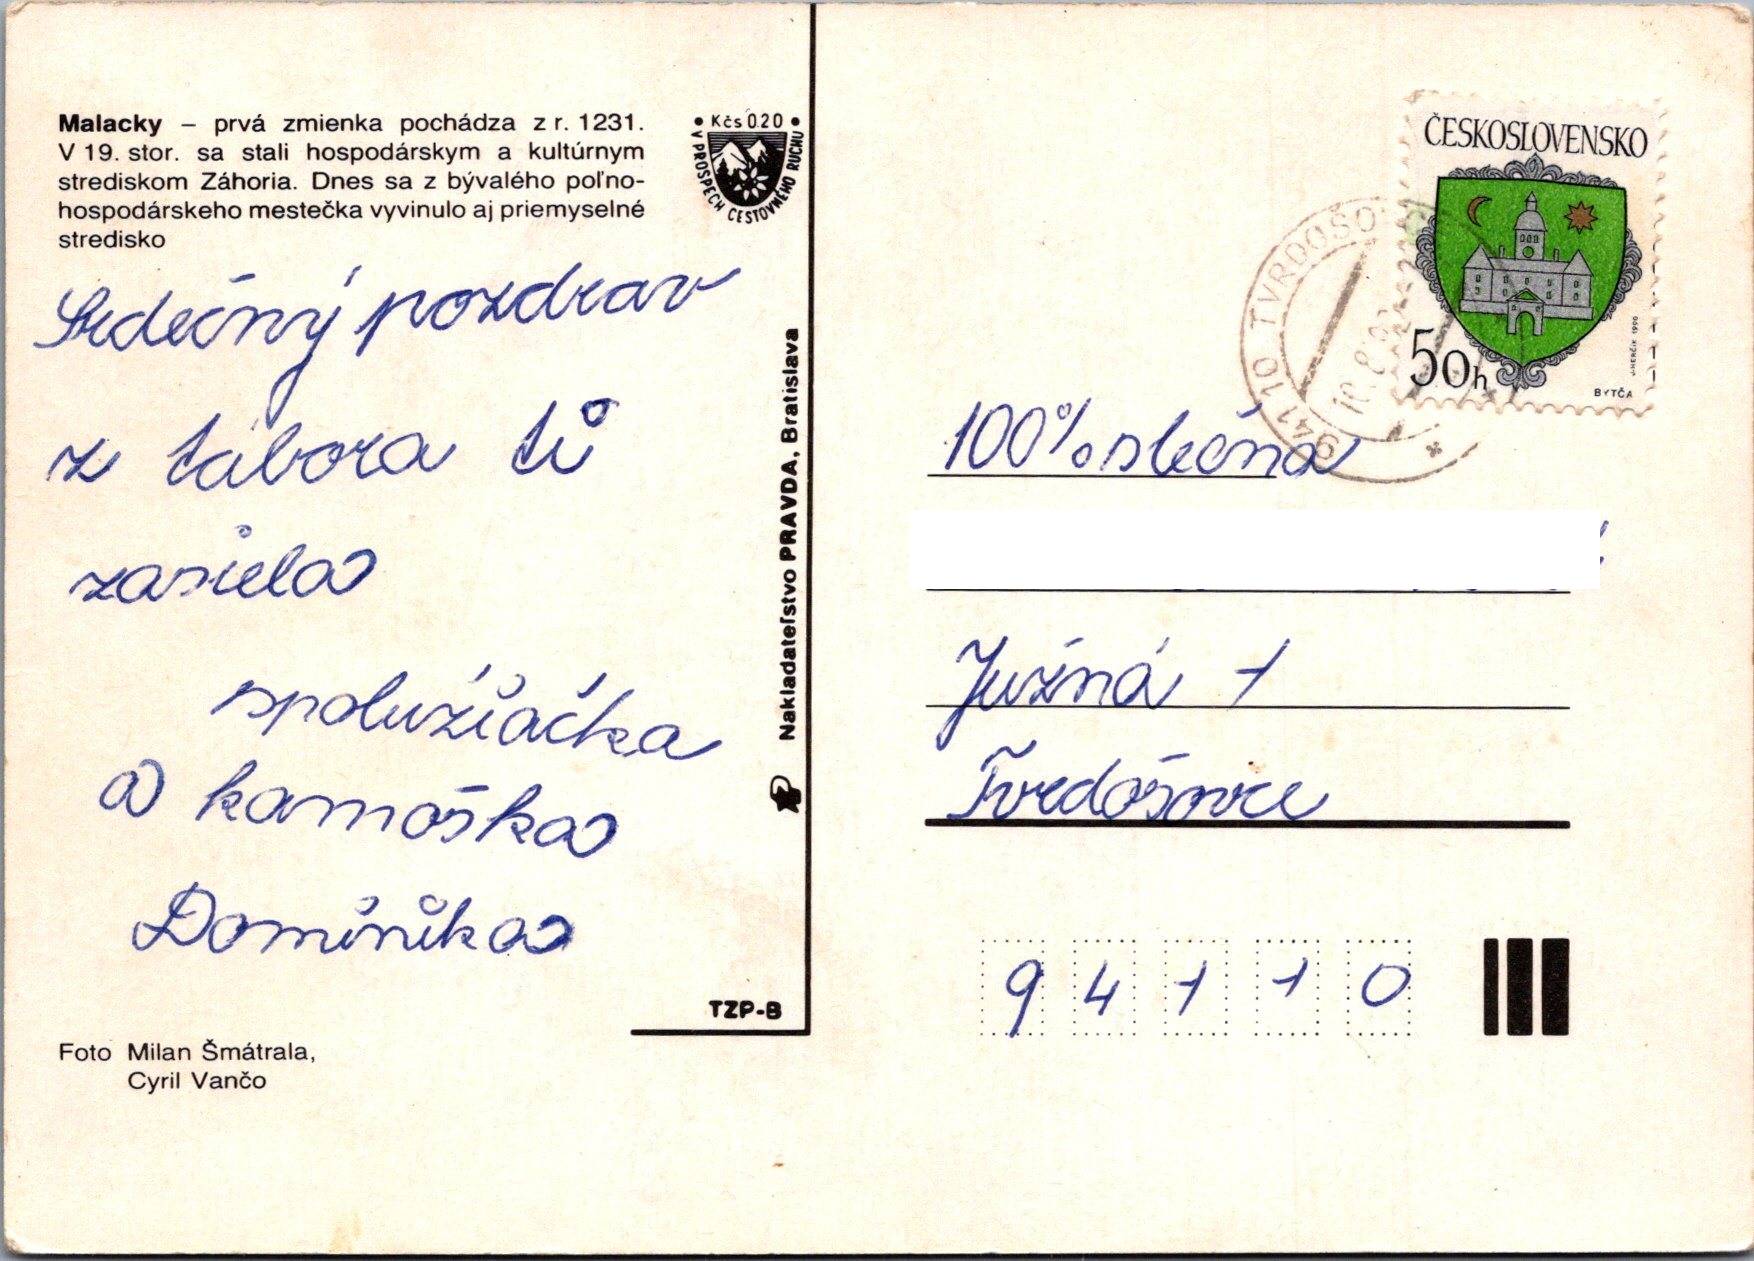 Malacky – prvá zmienka pochádza z r. 1231.
V 19. stor. sa stali hospodárskym a kultúrnym
strediskom Záhoria. Dnes sa z bývalého poľno-
hospodárskeho mestečka vyvinulo aj priemyselné
stredisko
Kčs 0.20
V PROSPECH CESTOVNÉHO RUCHU
Srdečný pozdrav
z tábora ti
zasiela
spolužiačka
a kamoška
Dominika
TZP-B
Foto Milan Šmátrala,
Cyril Vančo
Nakladateľstvo PRAVDA, Bratislava
ČESKOSLOVENSKO
50h
J. HERČÍK 1990
BYTČA
941 10 TVRDOŠOV
100% slečna
Južná 1
Tvrdošovce
94110